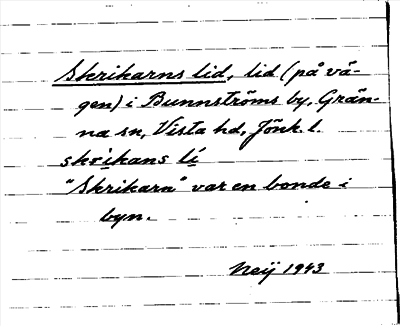 Skrikarns lid, lid (på vä-
gen) i Bunnströms by, Grän-
na sn, Vista hd, Jönk. l.
skrikans lí
"Skrikarn" var en bonde i
byn.
Neij 1943